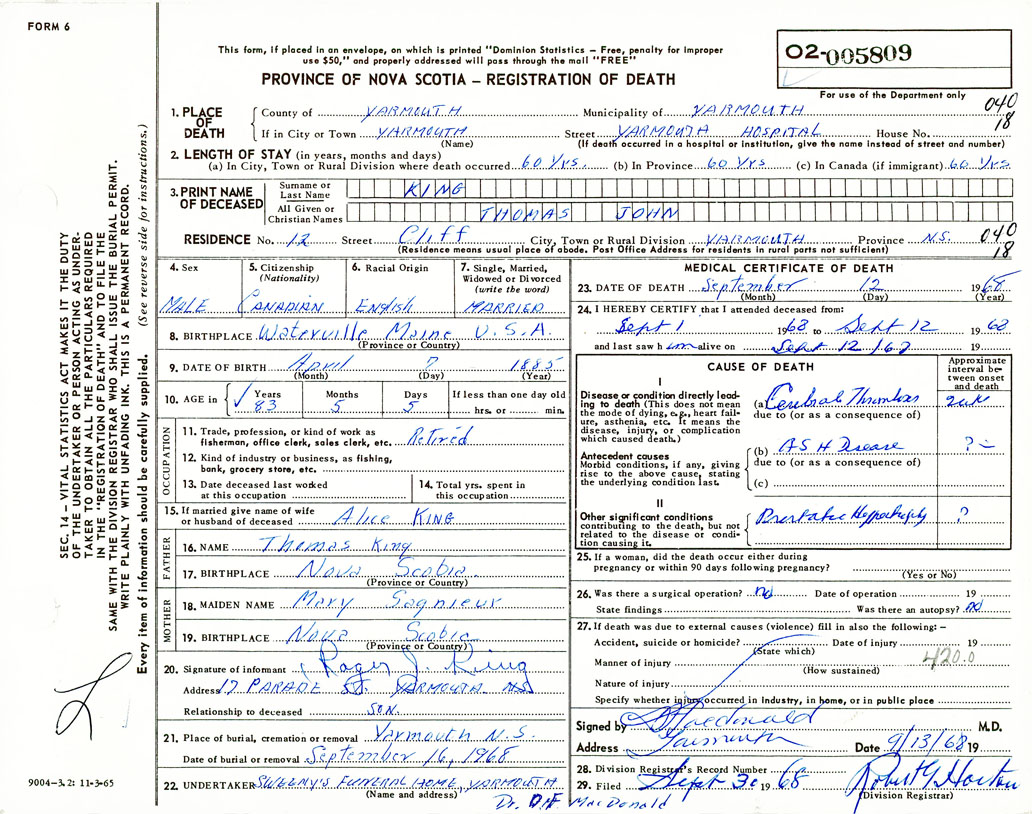 FORM 6
This form, if placed in an envelope, on which is printed "Dominion Statistics – Free, penalty for improper
use $50," and properly addressed will pass through the mail "FREE"
PROVINCE OF NOVA SCOTIA – REGISTRATION OF DEATH
02-005809
For use of the Department only
040
18
1. PLACE OF DEATH
County of YARMOUTH Municipality of YARMOUTH
If in City or Town YARMOUTH Street YARMOUTH HOSPITAL House No.
(Name) (If death occurred in a hospital or institution, give the name instead of street and number)
2. LENGTH OF STAY (in years, months and days)
(a) In City, Town or Rural Division where death occurred 60 Yrs. (b) In Province 60 Yrs (c) In Canada (if immigrant) 60 Yrs.
3. PRINT NAME OF DECEASED
Surname or Last Name KING
All Given or Christian Names THOMAS JOHN
RESIDENCE No. 12 Street Cliff City, Town or Rural Division YARMOUTH Province N.S.
(Residence means usual place of abode. Post Office Address for residents in rural parts not sufficient)
040
18
4. Sex
MALE
5. Citizenship (Nationality)
CANADIAN
6. Racial Origin
English
7. Single, Married, Widowed or Divorced (write the word)
MARRIED
8. BIRTHPLACE Waterville Maine U.S.A.
(Province or Country)
9. DATE OF BIRTH April 7 1885
(Month) (Day) (Year)
10. AGE in Years Months Days If less than one day old
83 5 5 hrs. or min.
OCCUPATION
11. Trade, profession, or kind of work as
fisherman, office clerk, sales clerk, etc. Retired
12. Kind of industry or business, as fishing,
bank, grocery store, etc.
13. Date deceased last worked
at this occupation
14. Total yrs. spent in
this occupation
15. If married give name of wife
or husband of deceased Alice KING
FATHER
16. NAME Thomas King
17. BIRTHPLACE Nova Scotia
(Province or Country)
MOTHER
18. MAIDEN NAME Mary
19. BIRTHPLACE Nova Scotia
(Province or Country)
20. Signature of informant Roger J. King
Address 17 PARADE ST. YARMOUTH NS
Relationship to deceased SON.
21. Place of burial, cremation or removal Yarmouth N.S.
Date of burial or removal September 16, 1968
22. UNDERTAKER SWEENY'S FUNERAL HOME, YARMOUTH
(Name and address)
Dr. D.F. MacDonald
MEDICAL CERTIFICATE OF DEATH
23. DATE OF DEATH September 12 1968
(Month) (Day) (Year)
24. I HEREBY CERTIFY that I attended deceased from:
Sept 1 1968 to Sept 12 1968
and last saw him alive on Sept 12 /68 19
CAUSE OF DEATH
Approximate interval between onset and death
I
Disease or condition directly lead-
ing to death (This does not mean
the mode of dying, e.g., heart fail-
ure, asthenia, etc. It means the
disease, injury, or complication
which caused death.)
(a) Cerebral Thrombosis 2 wk
due to (or as a consequence of)
Antecedent causes
Morbid conditions, if any, giving
rise to the above cause, stating
the underlying condition last.
(b) A S H Disease ?
due to (or as a consequence of)
(c)
II
Other significant conditions
contributing to the death, but not
related to the disease or condi-
tion causing it.
Prostatic Hypertrophy ?
25. If a woman, did the death occur either during
pregnancy or within 90 days following pregnancy?
(Yes or No)
26. Was there a surgical operation? no Date of operation 19
State findings Was there an autopsy? no
27. If death was due to external causes (violence) fill in also the following: –
Accident, suicide or homicide? Date of injury 19
(State which)
Manner of injury 420.0
(How sustained)
Nature of injury
Specify whether injury occurred in industry, in home, or in public place
Signed by Macdonald M.D.
Address Yarmouth Date 9/13/68 19
28. Division Registrar's Record Number
29. Filed Sept 30 1968 Robert G. Horton
(Division Registrar)
SEC. 14 – VITAL STATISTICS ACT MAKES IT THE DUTY
OF THE UNDERTAKER OR PERSON ACTING AS UNDER-
TAKER TO OBTAIN ALL THE PARTICULARS REQUIRED
IN THE "REGISTRATION OF DEATH" AND TO FILE THE
SAME WITH THE DIVISION REGISTRAR WHO SHALL ISSUE THE BURIAL PERMIT.
WRITE PLAINLY WITH UNFADING INK. THIS IS A PERMANENT RECORD.
Every item of information should be carefully supplied. (See reverse side for instructions.)
9004-3.2: 11-3-65